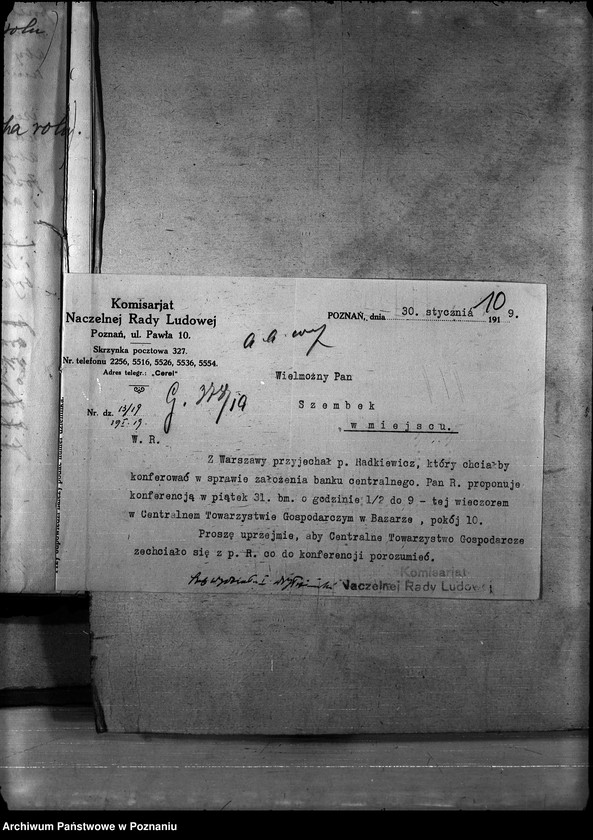 rolu)
na rolu).
Komisarjat
Naczelnej Rady Ludowej
Poznań, ul. Pawła 10.
Skrzynka pocztowa 327.
Nr. telefonu 2256, 5516, 5526, 5536, 5554.
Adres telegr.: „Cerel"
Nr. dz. 13/19
19 I. 19
W. R.
POZNAŃ, dnia 30. stycznia 191 9.
10
a. a.
G.
/19
Wielmożny Pan
Szembek
w miejscu.
Z Warszawy przyjechał p. Radkiewicz, który chciałby
konferować w sprawie założenia banku centralnego. Pan R. proponuje
konferencją w piątek 31. bm. o godzinie 1/2 do 9 - tej wieczorem
w Centralnem Towarzystwie Gospodarczym w Bazarze , pokój 10.
Proszę uprzejmie, aby Centralne Towarzystwo Gospodarcze
zechciało się z p. R. co do konferencji porozumieć.
Komisarjat
Naczelnej Rady Ludowej
Archiwum Państwowe w Poznaniu